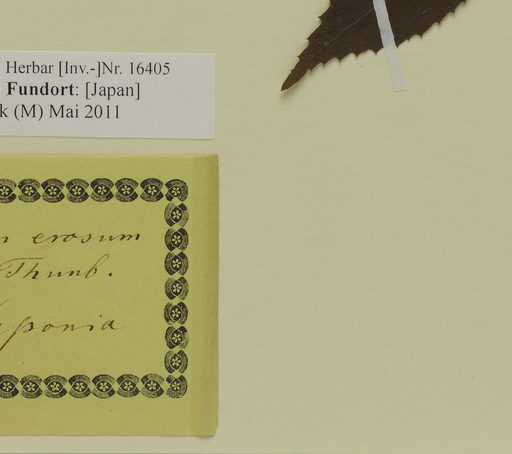 Herbar [Inv.-]Nr. 16405
Fundort: [Japan]
k (M) Mai 2011
n erosum
Thunb.
aponia